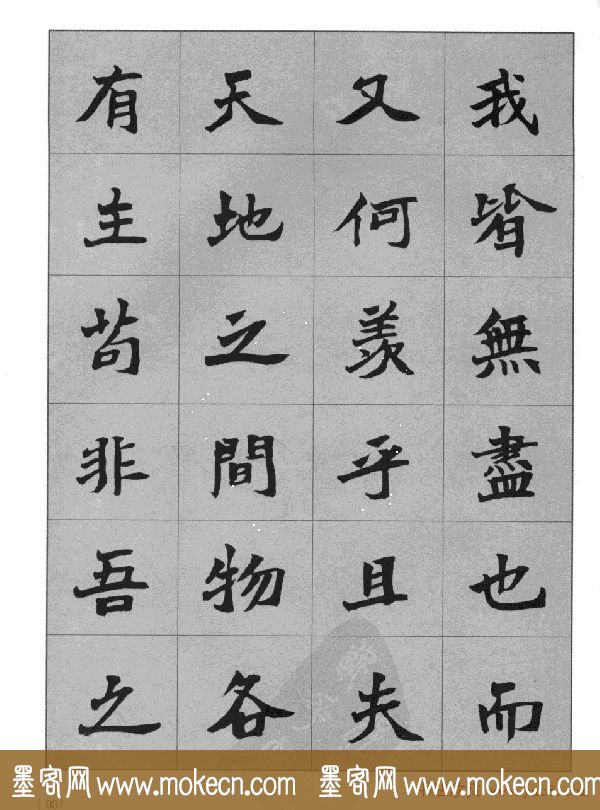 我皆無盡也而
又何羨乎且夫
天地之間物各
有主苟非吾之
墨客网 www.mokecn.com 墨客网 www.mokecn.com
031